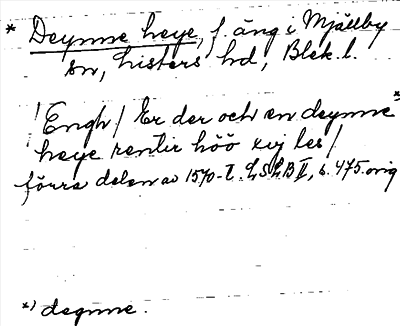 * Deynne heye, f. äng i Mjällby
sn, Listers hd, Blek. l.
! Engh / Er der och en deynne *)
heye rentir höö xvj les /
förra delen av 1570-t. LSLB II, s. 475. orig
*) degnne.